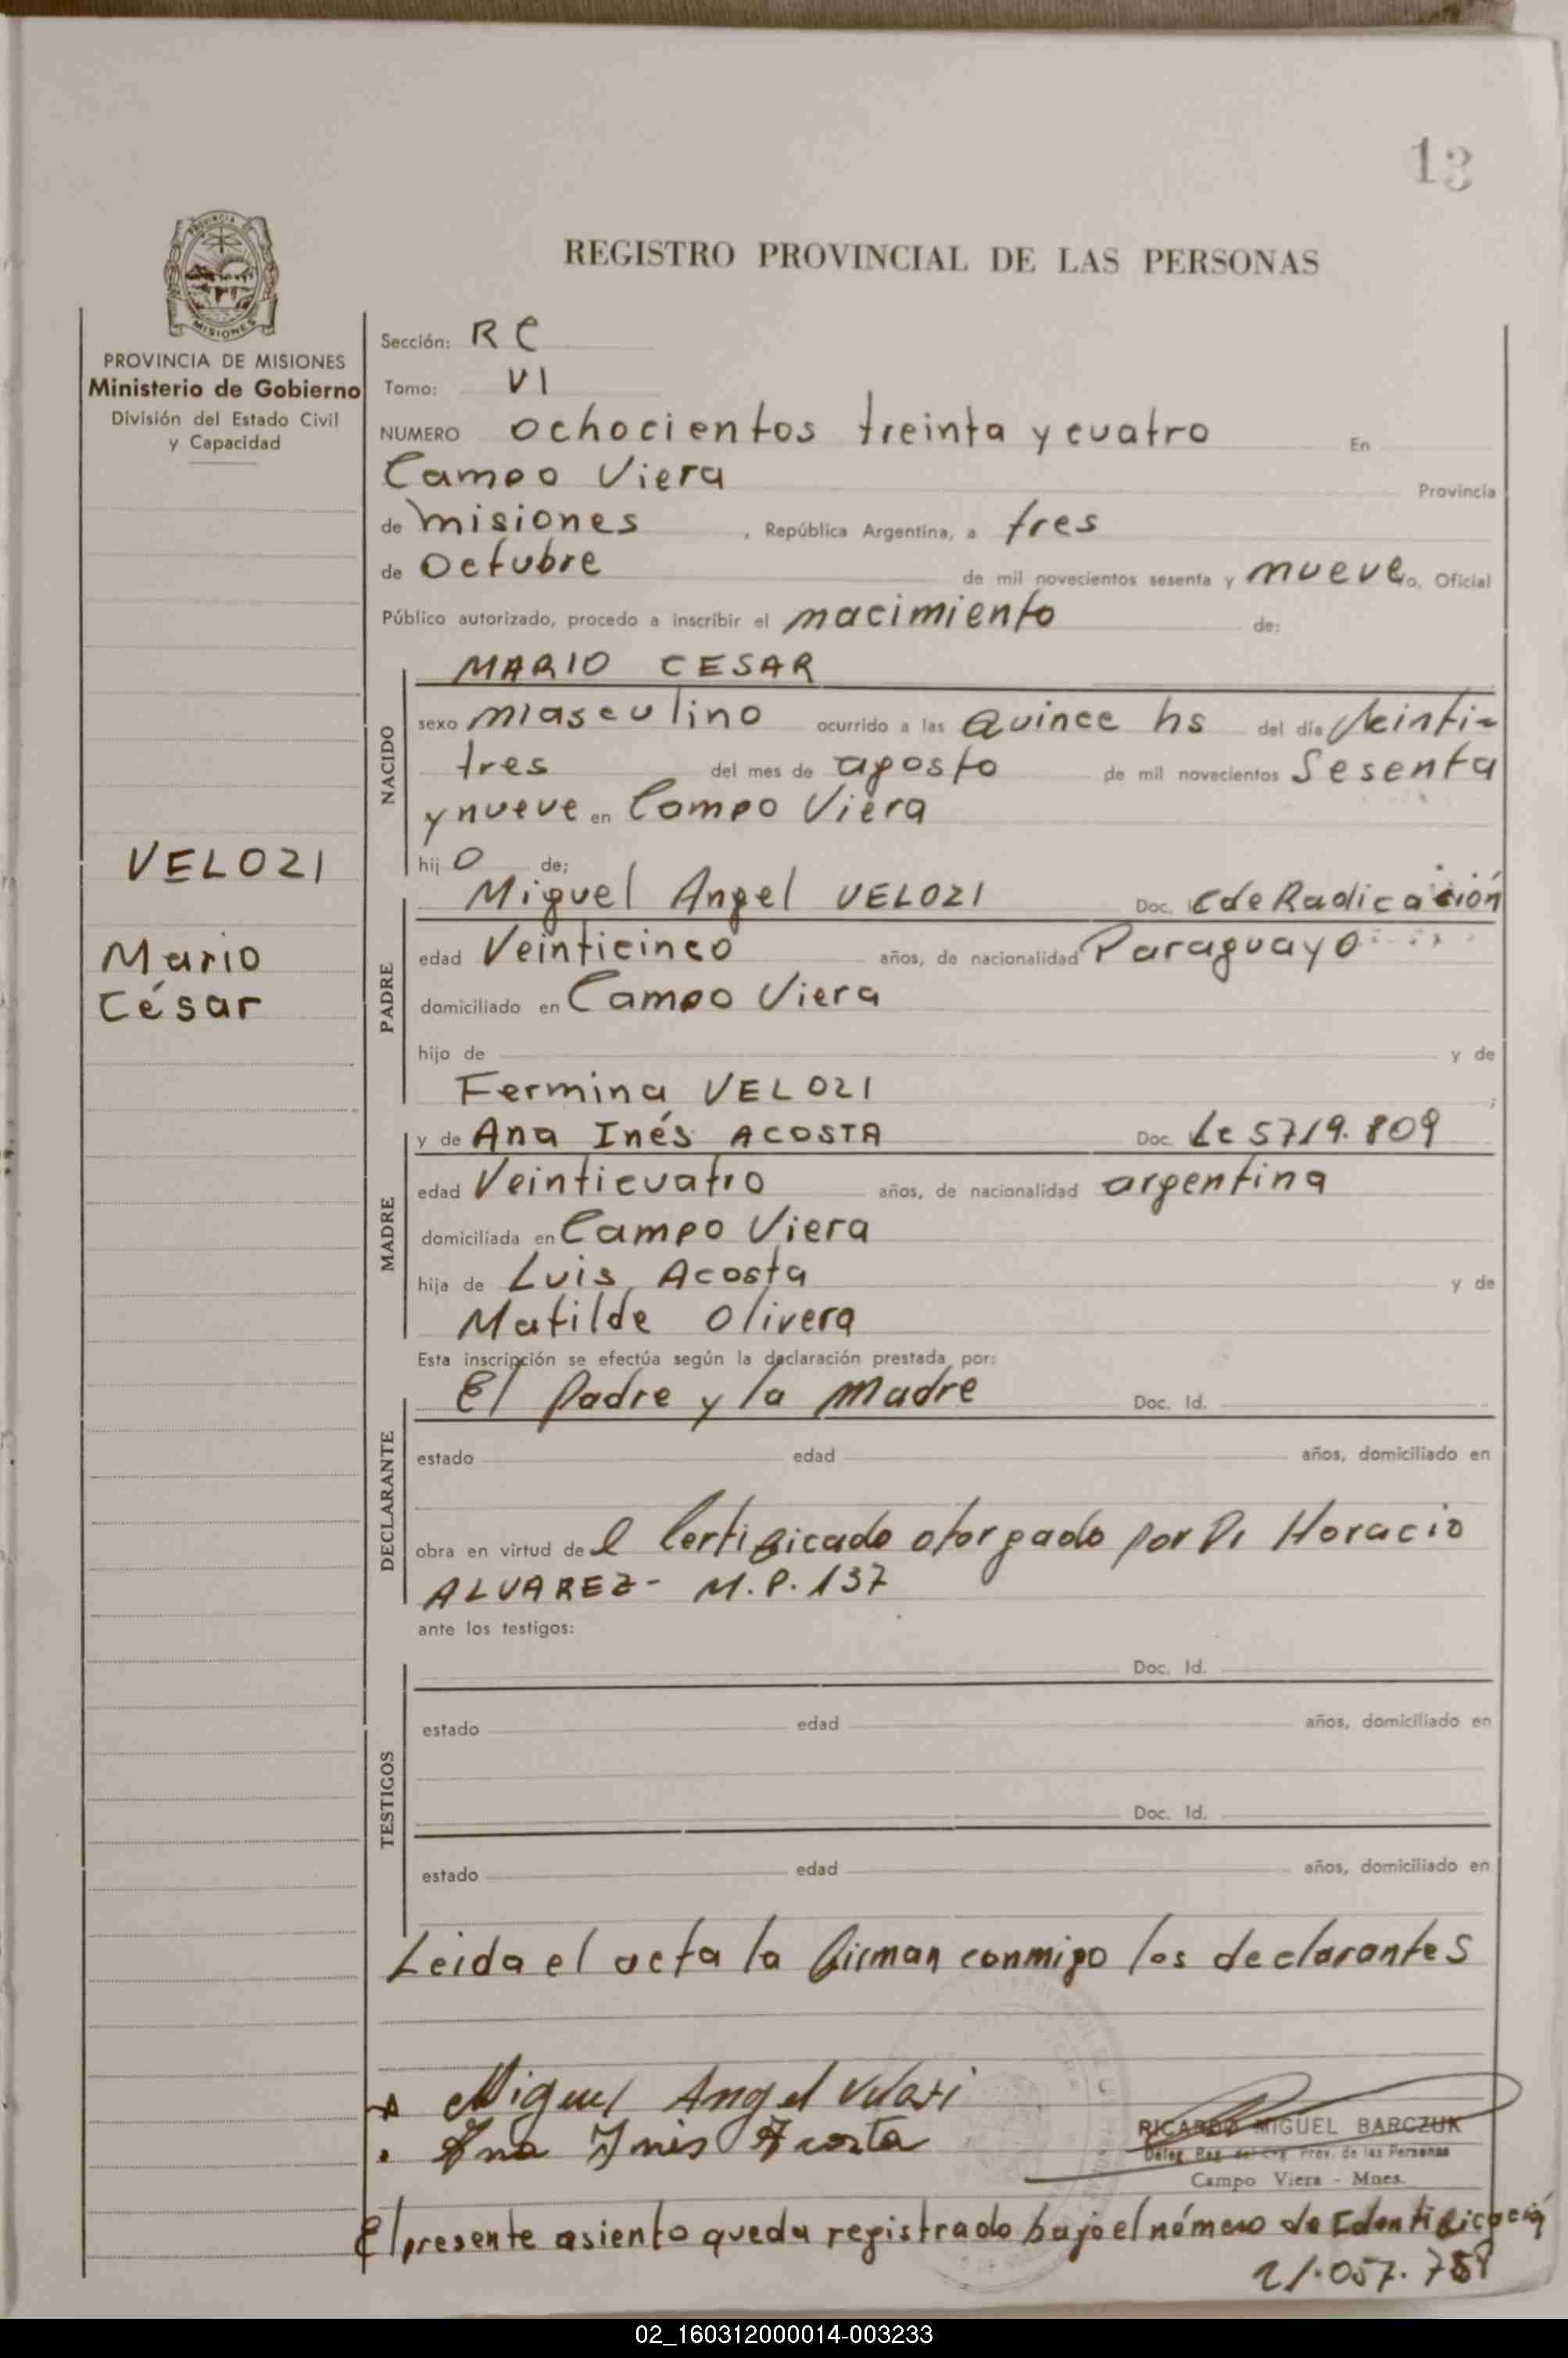 13
PROVINCIA
MISIONES
REGISTRO PROVINCIAL DE LAS PERSONAS
PROVINCIA DE MISIONES
Ministerio de Gobierno
División del Estado Civil
y Capacidad
VELOZI
Mario
César
Sección: R C
Tomo: VI
NUMERO ochocientos treinta y cuatro En
Campo Viera Provincia
de misiones , República Argentina, a tres
de Octubre de mil novecientos sesenta y nueve o, Oficial
Público autorizado, procedo a inscribir el nacimiento de:
NACIDO
MARIO CESAR
sexo masculino ocurrido a las Quince hs del día Veinti-
tres del mes de agosto de mil novecientos Sesenta
y nueve en Campo Viera
hij o de;
PADRE
Miguel Angel VELOZI Doc. C de Radicación
edad Veinticinco años, de nacionalidad Paraguayo
domiciliado en Campo Viera
hijo de y de
Fermina VELOZI ;
MADRE
y de Ana Inés ACOSTA Doc. Lc 5719.809
edad Veinticuatro años, de nacionalidad argentina
domiciliada en Campo Viera
hija de Luis Acosta y de
Matilde Olivera
Esta inscripción se efectúa según la declaración prestada por:
DECLARANTE
El padre y la madre Doc. Id.
estado edad años, domiciliado en
obra en virtud de l Certificado otorgado por Dr Horacio
ALVAREZ- M.P. 137
ante los testigos:
TESTIGOS
Doc. Id.
estado edad años, domiciliado en
Doc. Id.
estado edad años, domiciliado en
Leida el acta la firman conmigo los declarantes
Miguel Angel Velozi
Ana Ines Acosta
RICARDO MIGUEL BARCZUK
Deleg. Reg. Prov. de las Personas
Campo Viera - Mnes.
El presente asiento queda registrado bajo el número de Identificación
21.057.
02_160312000014-003233